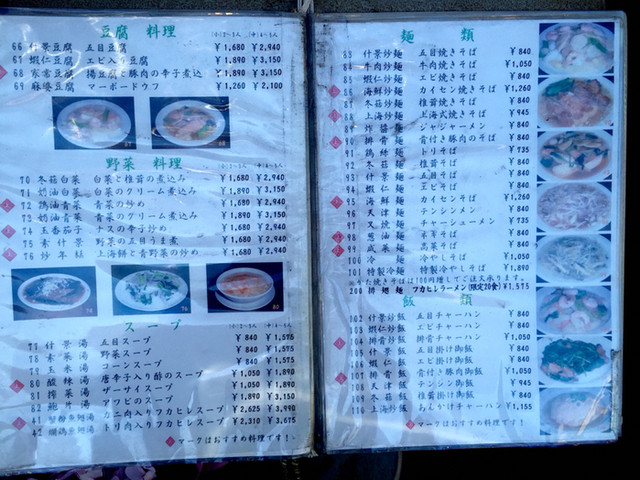 豆腐 料理
(小)2〜3人 (中)4〜5人
66 什景豆腐 五目豆腐 ¥1,680 ¥2,940
67 蝦仁豆腐 エビ入り豆腐 ¥1,890 ¥3,150
68 家常豆腐 揚豆腐と豚肉の辛子煮込 ¥1,890 ¥3,150
69 麻婆豆腐 マーボードウフ ¥1,260 ¥2,100
67
68
野菜 料理
(小)2〜3人 (中)4〜5人
70 冬菇白菜 白菜と椎茸の煮込み ¥1,680 ¥2,940
71 奶油白菜 白菜のクリーム煮込み ¥1,890 ¥3,150
72 鶏油青菜 青菜の炒め ¥1,680 ¥2,940
73 奶油青菜 青菜のクリーム煮込み ¥1,890 ¥3,150
74 五香茄子 ナスの辛子炒め ¥1,680 ¥2,940
75 素什景 野菜の五目うま煮 ¥1,680 ¥2,940
76 炒年糕 上海餅と青野菜の炒め ¥1,680 ¥2,940
74
76
80
スープ
(小)2〜3人 (中)4〜5人
77 什景湯 五目スープ ¥840 ¥1,575
78 素菜湯 野菜スープ ¥840 ¥1,575
79 玉米湯 コーンスープ ¥1,050 ¥1,890
80 酸辣湯 唐辛子入り酢のスープ ¥1,050 ¥1,890
81 搾菜湯 ザーサイスープ ¥840 ¥1,575
82 鮑片湯 アワビのスープ ¥1,050 ¥1,890
41 蟹粉魚翅湯 カニ肉入りフカヒレスープ ¥2,625 ¥3,990
42 鶏魚翅湯 トリ肉入りフカヒレスープ ¥2,310 ¥3,675
マークはおすすめ料理です!
麺 類
83 什景炒麺 五目焼きそば ¥840
84 牛肉炒麺 牛肉焼きそば ¥1,050
85 蝦仁炒麺 エビ焼きそば ¥840
86 海鮮炒麺 カイセン焼きそば ¥1,260
87 冬菇炒麺 椎茸焼きそば ¥840
88 上海炒麺 上海式焼きそば ¥945
89 炸醤麺 ジャジャーメン ¥735
90 排骨麺 骨付き豚肉のそば ¥840
91 鶏絲麺 トリそば ¥735
92 冬菇麺 椎茸そば ¥840
93 什景麺 五目そば ¥840
94 蝦仁麺 エビそば ¥840
95 海鮮麺 カイセンそば ¥1,050
96 天津麺 テンシンメン ¥945
97 叉焼麺 チャーシューメン ¥735
98 葱油麺 ネギそば ¥735
99 咸菜麺 高菜そば ¥840
100 冷麺 冷やしそば ¥1,050
101 特製冷麺 特製冷やしそば ¥1,890
かた焼きそばは100円増しでご注文承ります。
200 排翅麺 フカヒレラーメン(限定20食) ¥1,575
飯 類
102 什景炒飯 五目チャーハン ¥840
103 蝦仁炒飯 エビチャーハン ¥840
104 排骨炒飯 排骨チャーハン ¥1,050
105 什景飯 五目掛け御飯 ¥840
106 蝦仁飯 エビ掛け御飯 ¥840
107 排骨飯 骨付き豚肉御飯 ¥1,050
108 天津飯 テンシン御飯 ¥945
109 冬菇飯 椎茸掛け御飯 ¥840
110 上海炒飯 あんかけチャーハン ¥1,155
マークはおすすめ料理です!